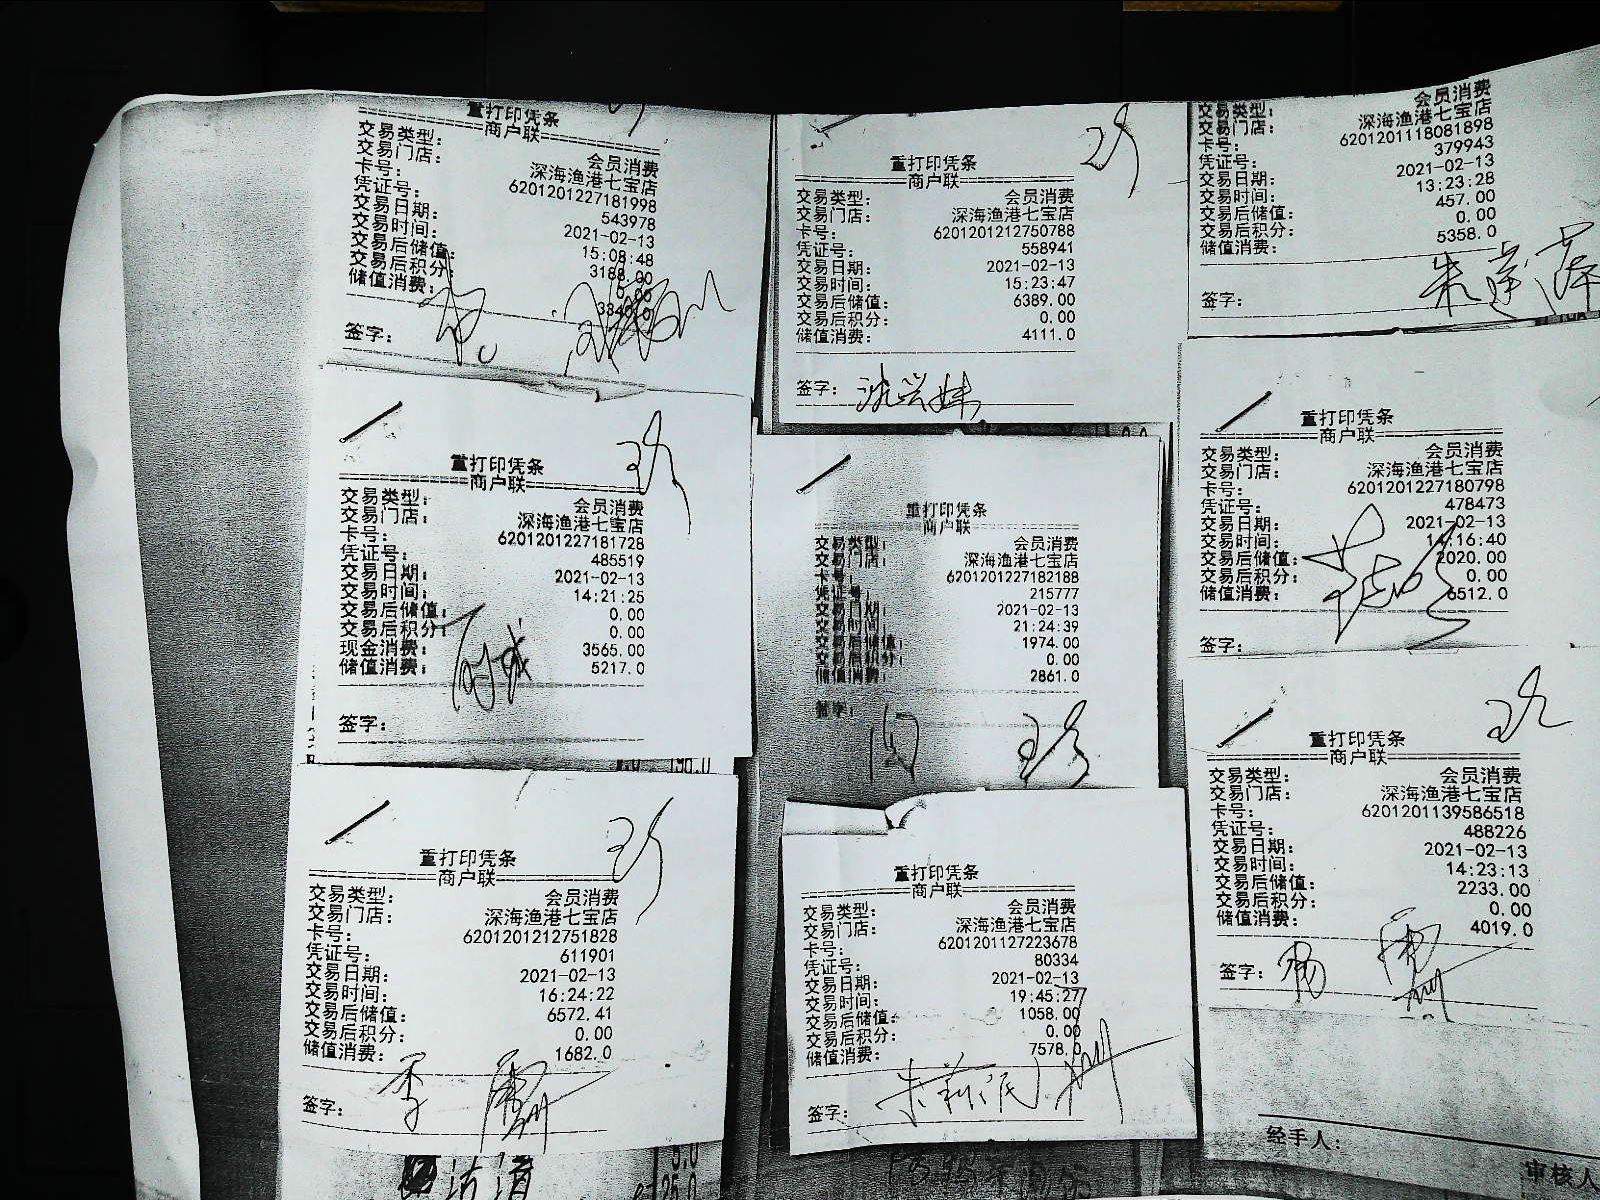 重打印凭条
商户联
交易类型： 会员消费
交易门店： 深海渔港七宝店
卡号： 6201201227181998
凭证号： 543978
交易日期： 2021-02-13
交易时间： 15:08:48
交易后储值： 3188.00
交易后积分： 0.00
储值消费：
签字：
重打印凭条
商户联
交易类型： 会员消费
交易门店： 深海渔港七宝店
卡号： 6201201212750788
凭证号： 558941
交易日期： 2021-02-13
交易时间： 15:23:47
交易后储值： 6389.00
交易后积分： 0.00
储值消费： 4111.0
签字： 沈兴妹
交易类型： 会员消费
交易门店： 深海渔港七宝店
卡号： 6201201118081898
凭证号： 379943
交易日期： 2021-02-13
交易时间： 13:23:28
交易后储值： 457.00
交易后积分： 0.00
储值消费： 5358.0
签字： 朱莲萍
重打印凭条
商户联
交易类型： 会员消费
交易门店： 深海渔港七宝店
卡号： 6201201227181728
凭证号： 485519
交易日期： 2021-02-13
交易时间： 14:21:25
交易后储值： 0.00
交易后积分： 0.00
现金消费： 3565.00
储值消费： 5217.0
签字：
重打印凭条
商户联
交易类型： 会员消费
交易门店： 深海渔港七宝店
卡号： 6201201227182188
凭证号： 215777
交易日期： 2021-02-13
交易时间： 21:24:39
交易后储值： 1974.00
交易后积分： 0.00
储值消费： 2861.0
签字：
重打印凭条
商户联
交易类型： 会员消费
交易门店： 深海渔港七宝店
卡号： 6201201227180798
凭证号： 478473
交易日期： 2021-02-13
交易时间： 14:16:40
交易后储值： 2020.00
交易后积分： 0.00
储值消费： 6512.0
签字：
重打印凭条
商户联
交易类型： 会员消费
交易门店： 深海渔港七宝店
卡号： 6201201212751828
凭证号： 611901
交易日期： 2021-02-13
交易时间： 16:24:22
交易后储值： 6572.41
交易后积分： 0.00
储值消费： 1682.0
签字： 李
重打印凭条
商户联
交易类型： 会员消费
交易门店： 深海渔港七宝店
卡号： 6201201127223678
凭证号： 80334
交易日期： 2021-02-13
交易时间： 19:45:27
交易后储值： 1058.00
交易后积分： 0.00
储值消费： 7578.0
签字： 朱莉民
重打印凭条
商户联
交易类型： 会员消费
交易门店： 深海渔港七宝店
卡号： 6201201139586518
凭证号： 488226
交易日期： 2021-02-13
交易时间： 14:23:13
交易后储值： 2233.00
交易后积分： 0.00
储值消费： 4019.0
签字：
经手人：
审核人